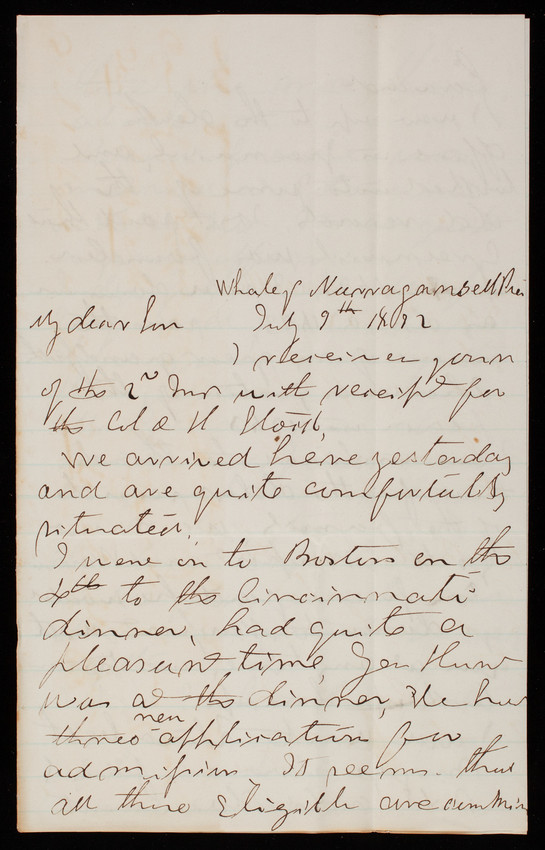 Whaley Narragansett Pier
My dear Son July 9th 1892
I received yours
of the 2nd Inst with receipt for
the Col & H Stock,
We arrived here yesterday
and are quite comfortably
situated.
I went on to Boston on the
4th to the Cincinnati
dinner, had quite a
pleasant time, Gen Hunt
was at the dinner, We have
three new application for
admission. It seems that
all those Eligible are